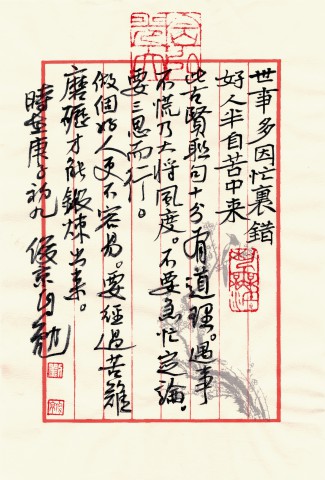 世事多因忙裏錯
好人半自苦中来
此古賢聯句十分有道理。遇事
不慌乃大将風度。不要急忙定論。
要三思而行。
做個好人更不容易。要經過苦難
磨砺才能鍛煉出来。
時在庚子初九 俊京自勉